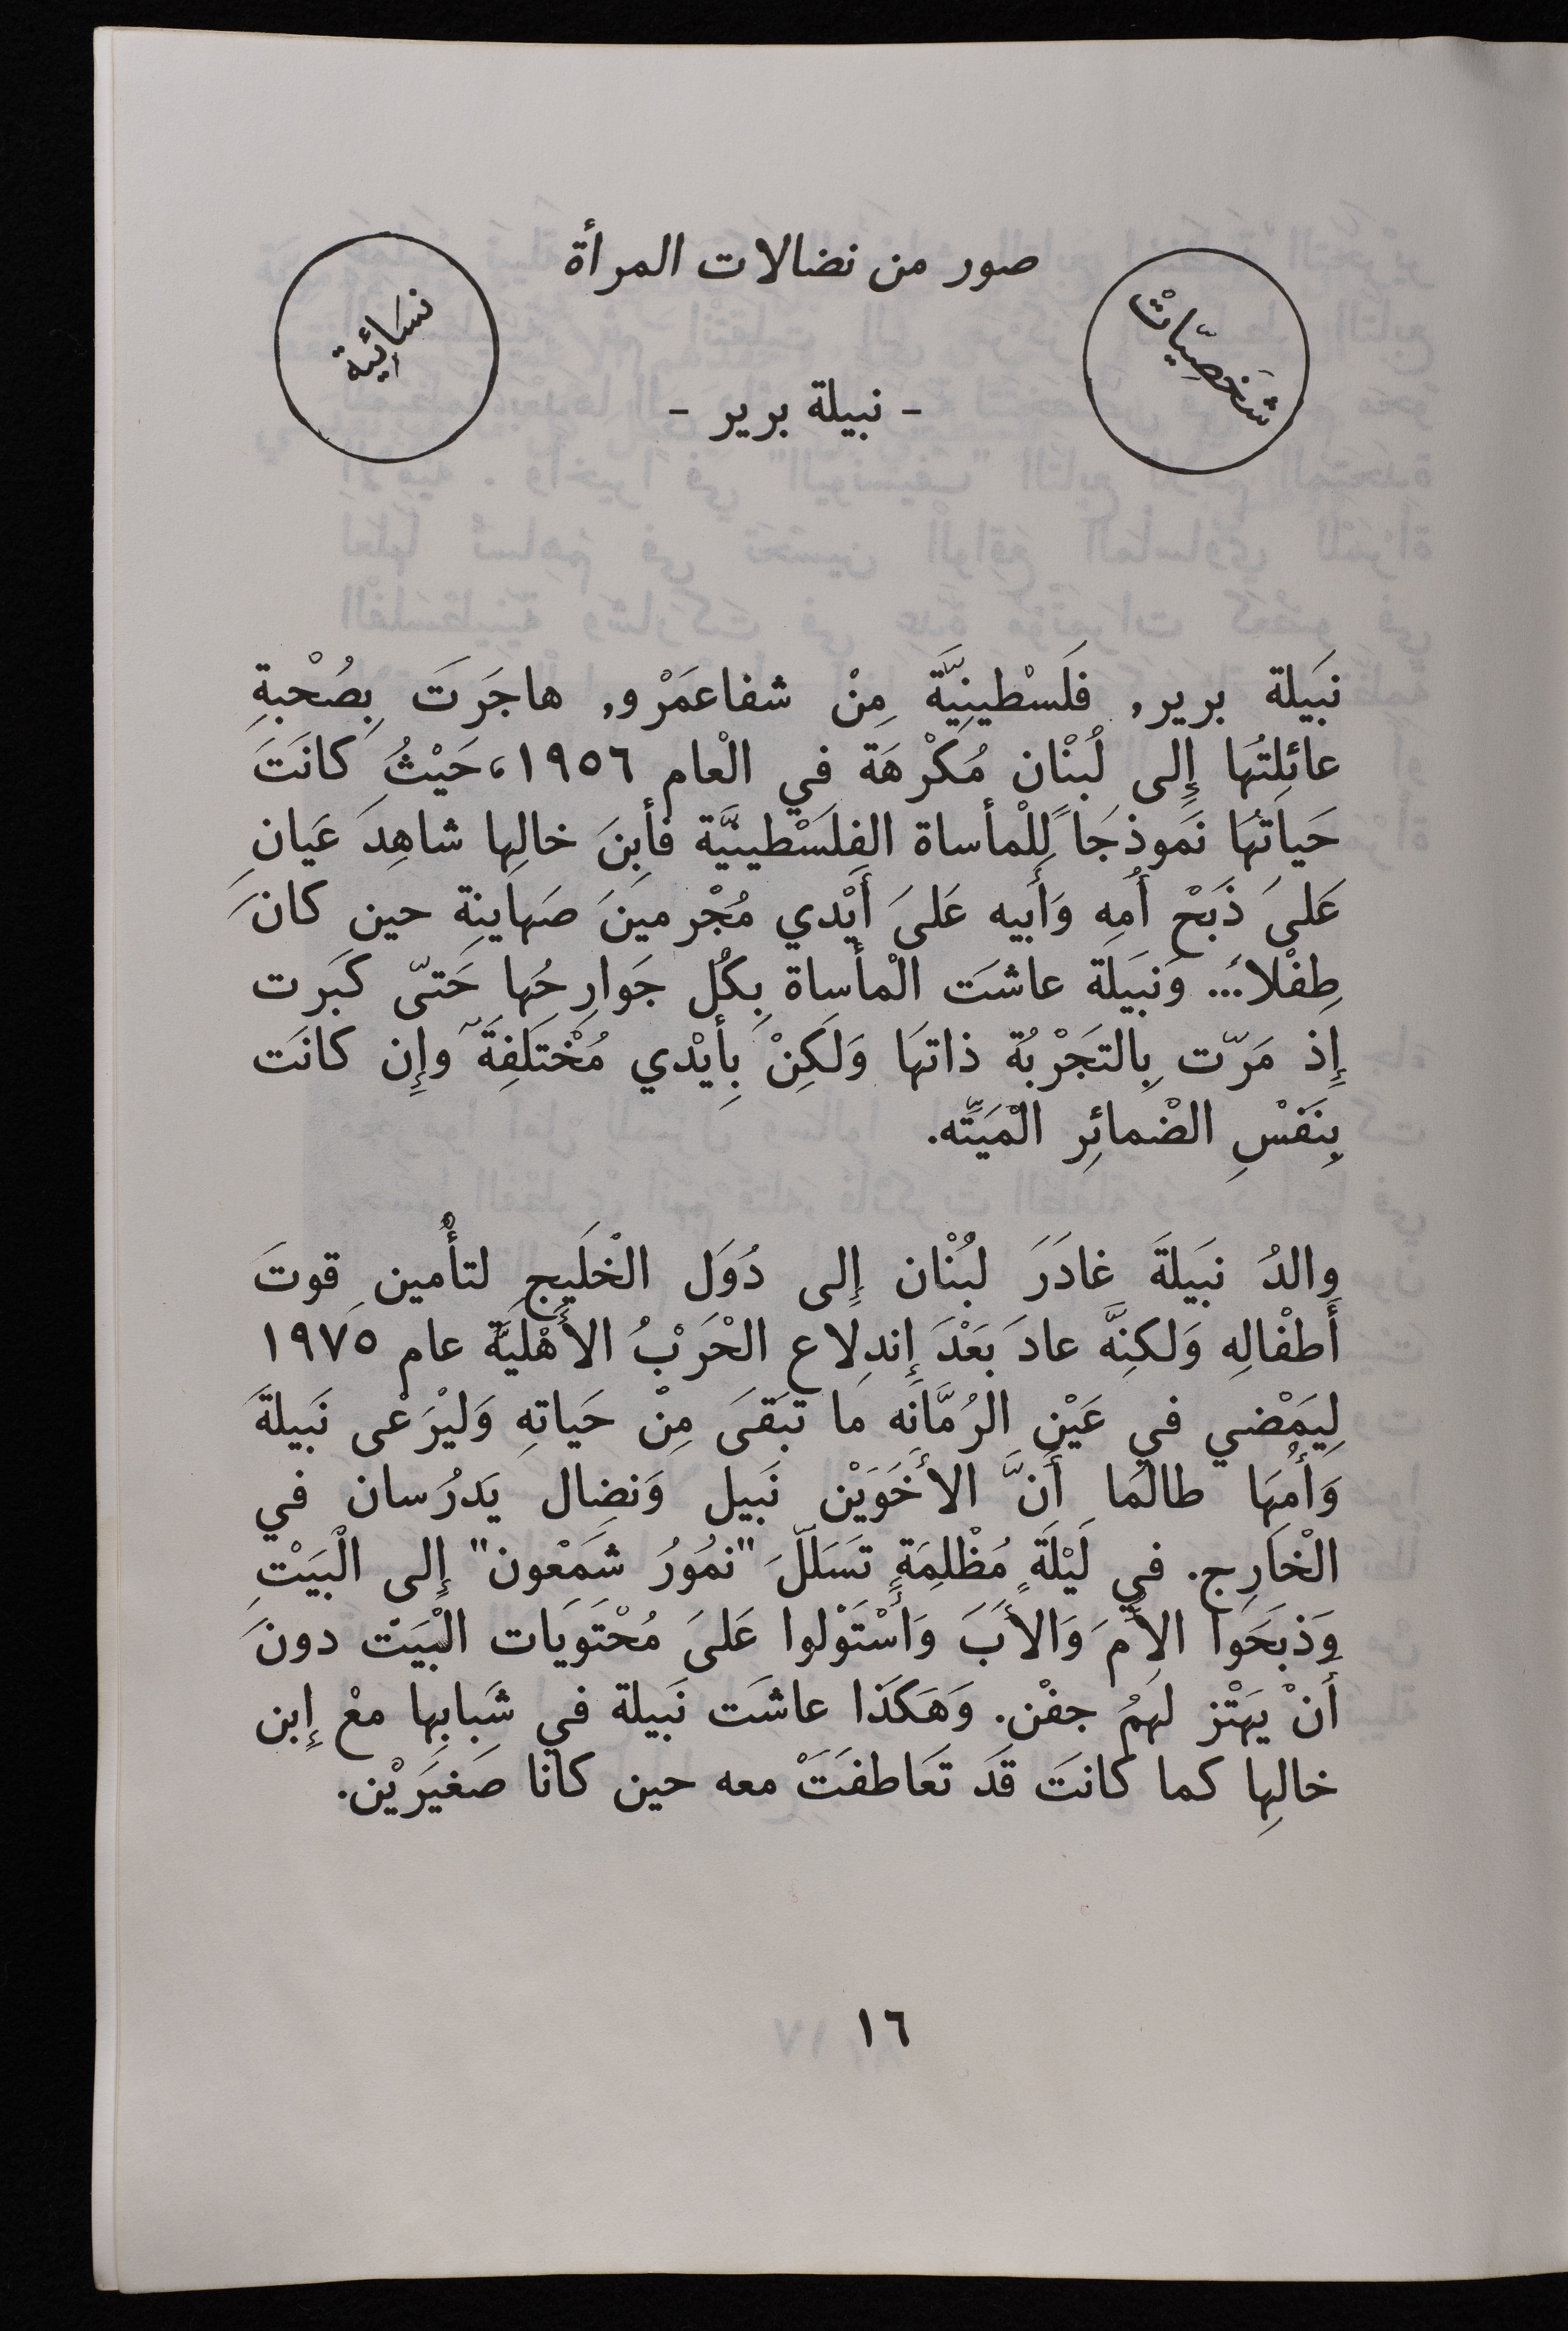 صور من نضالات المرأة
شَخصِيّاتْ
نسَائِية
- نبيلة برير -
نبَيلة برير, فلَسْطينِيَّة مِنْ شفاعمَرْو, هاجَرتَ بِصُحْبةِ
عائلِتُها إِلى لُبنْان مُكَرْهَة في الْعام ١٩٥٦، حَيْثُ كانَتَ
حَياَتهُا نمَوذجَاً لِلْمأساة الفِلَسْطينيَّة فأبِنَ خالِها شاهِدَ عَيانِ
عَلىَ ذَبَحْ أُمِه وَأَبيه عَلىَ أَيْدي مُجْرمينَ صَهاَينِة حين كانَ
طِفْلاً... وَنبَيلَة عاشَت الْمأساة بِكُل جَوارِحُها حَتىّ كَبَرت
إِذ مَرّت بِالتجَرْبُة ذاتهَا وَلَكِنْ بِأيْدي مُخْتَلفِةَ وإِن كانَت
بِنَفَسْ الضْمائرِ الْمَيتِّه.
والدُ نبَيلةَ غادَرَ لبُنْان إِلى دُوَل الْخلَيج لتأْمين قوتَ
أَطفْالِه وَلكنِهَّ عادَ بَعَدْ إِندِلاع الْحَرْبُ الأَهْليَّة عام ١٩٧٥
لِيمَضْي في عَيْن الرُمَّانَه ما تبَقىَ مِنْ حَياتهِ وَليْرَعْى نَبيلةَ
وَأُمهَا طالمَا أَنَّ الأخَوَيْن نَبيل وَنضِال يَدرُسان في
الْخارِج. في لَيْلَةٍ مُظْلِمَةٍ تسَلَلّ "نمُورُ شمَعْون" إِلى الْبيَتْ
وَذبحَوا الأُمَ وَالأَبَ وَأسْتَوْلوا عَلىَ مُحْتوَيات الْبيَتْ دونَ
أَنْ يَهتْز لهَمُ جفْن. وَهَكَذا عاشَت نَبيلة في شَبابِها معْ إِبن
خالِها كما كانتَ قَدَ تعَاطفَتَْ معه حين كانا صَغيَريْن.
١٦